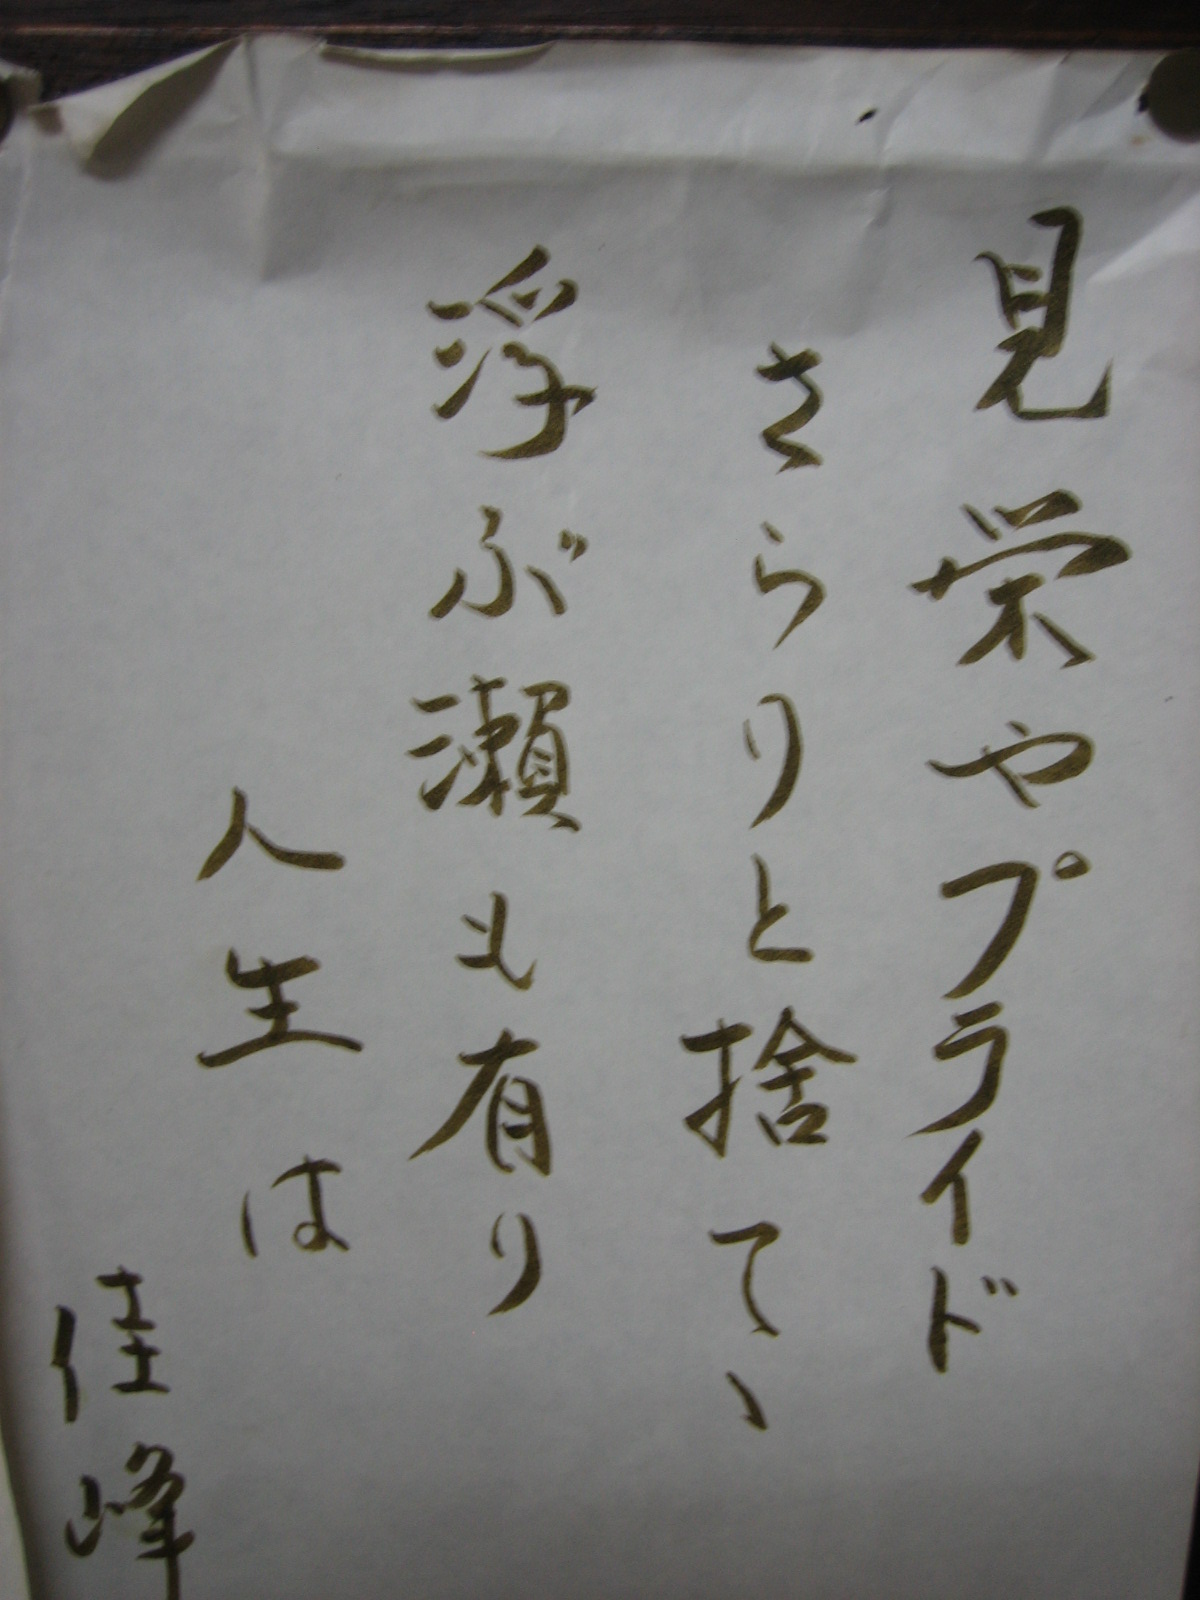 見栄やプライド
さらりと捨てゝ、
浮ぶ瀬も有り
人生は
佳峰